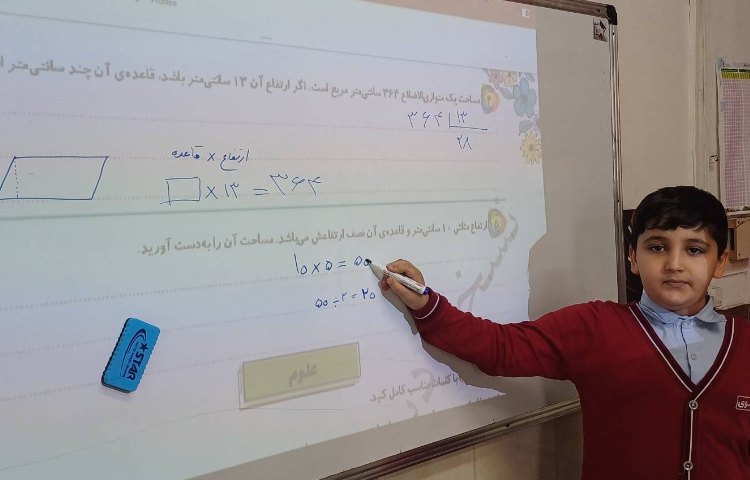 مساحت یک متوازی‌الاضلاع ۳۶۴ سانتی‌متر مربع است. اگر ارتفاع آن ۱۳ سانتی‌متر باشد، قاعده‌ی آن چند سانتی‌متر
۳۶۴ ۱۳
۲۸
ارتفاع × قاعده
□ × ۱۳ = ۳۶۴
۵ ارتفاع مثلثی ۱۰ سانتی‌متر و قاعده‌ی آن نصف ارتفاعش می‌باشد. مساحت آن را به‌دست آورید.
۱۰ × ۵ = ۵۰
۵۰ ÷ ۲ = ۲۵
STAR
علوم
با کلمات مناسب کامل کنید.